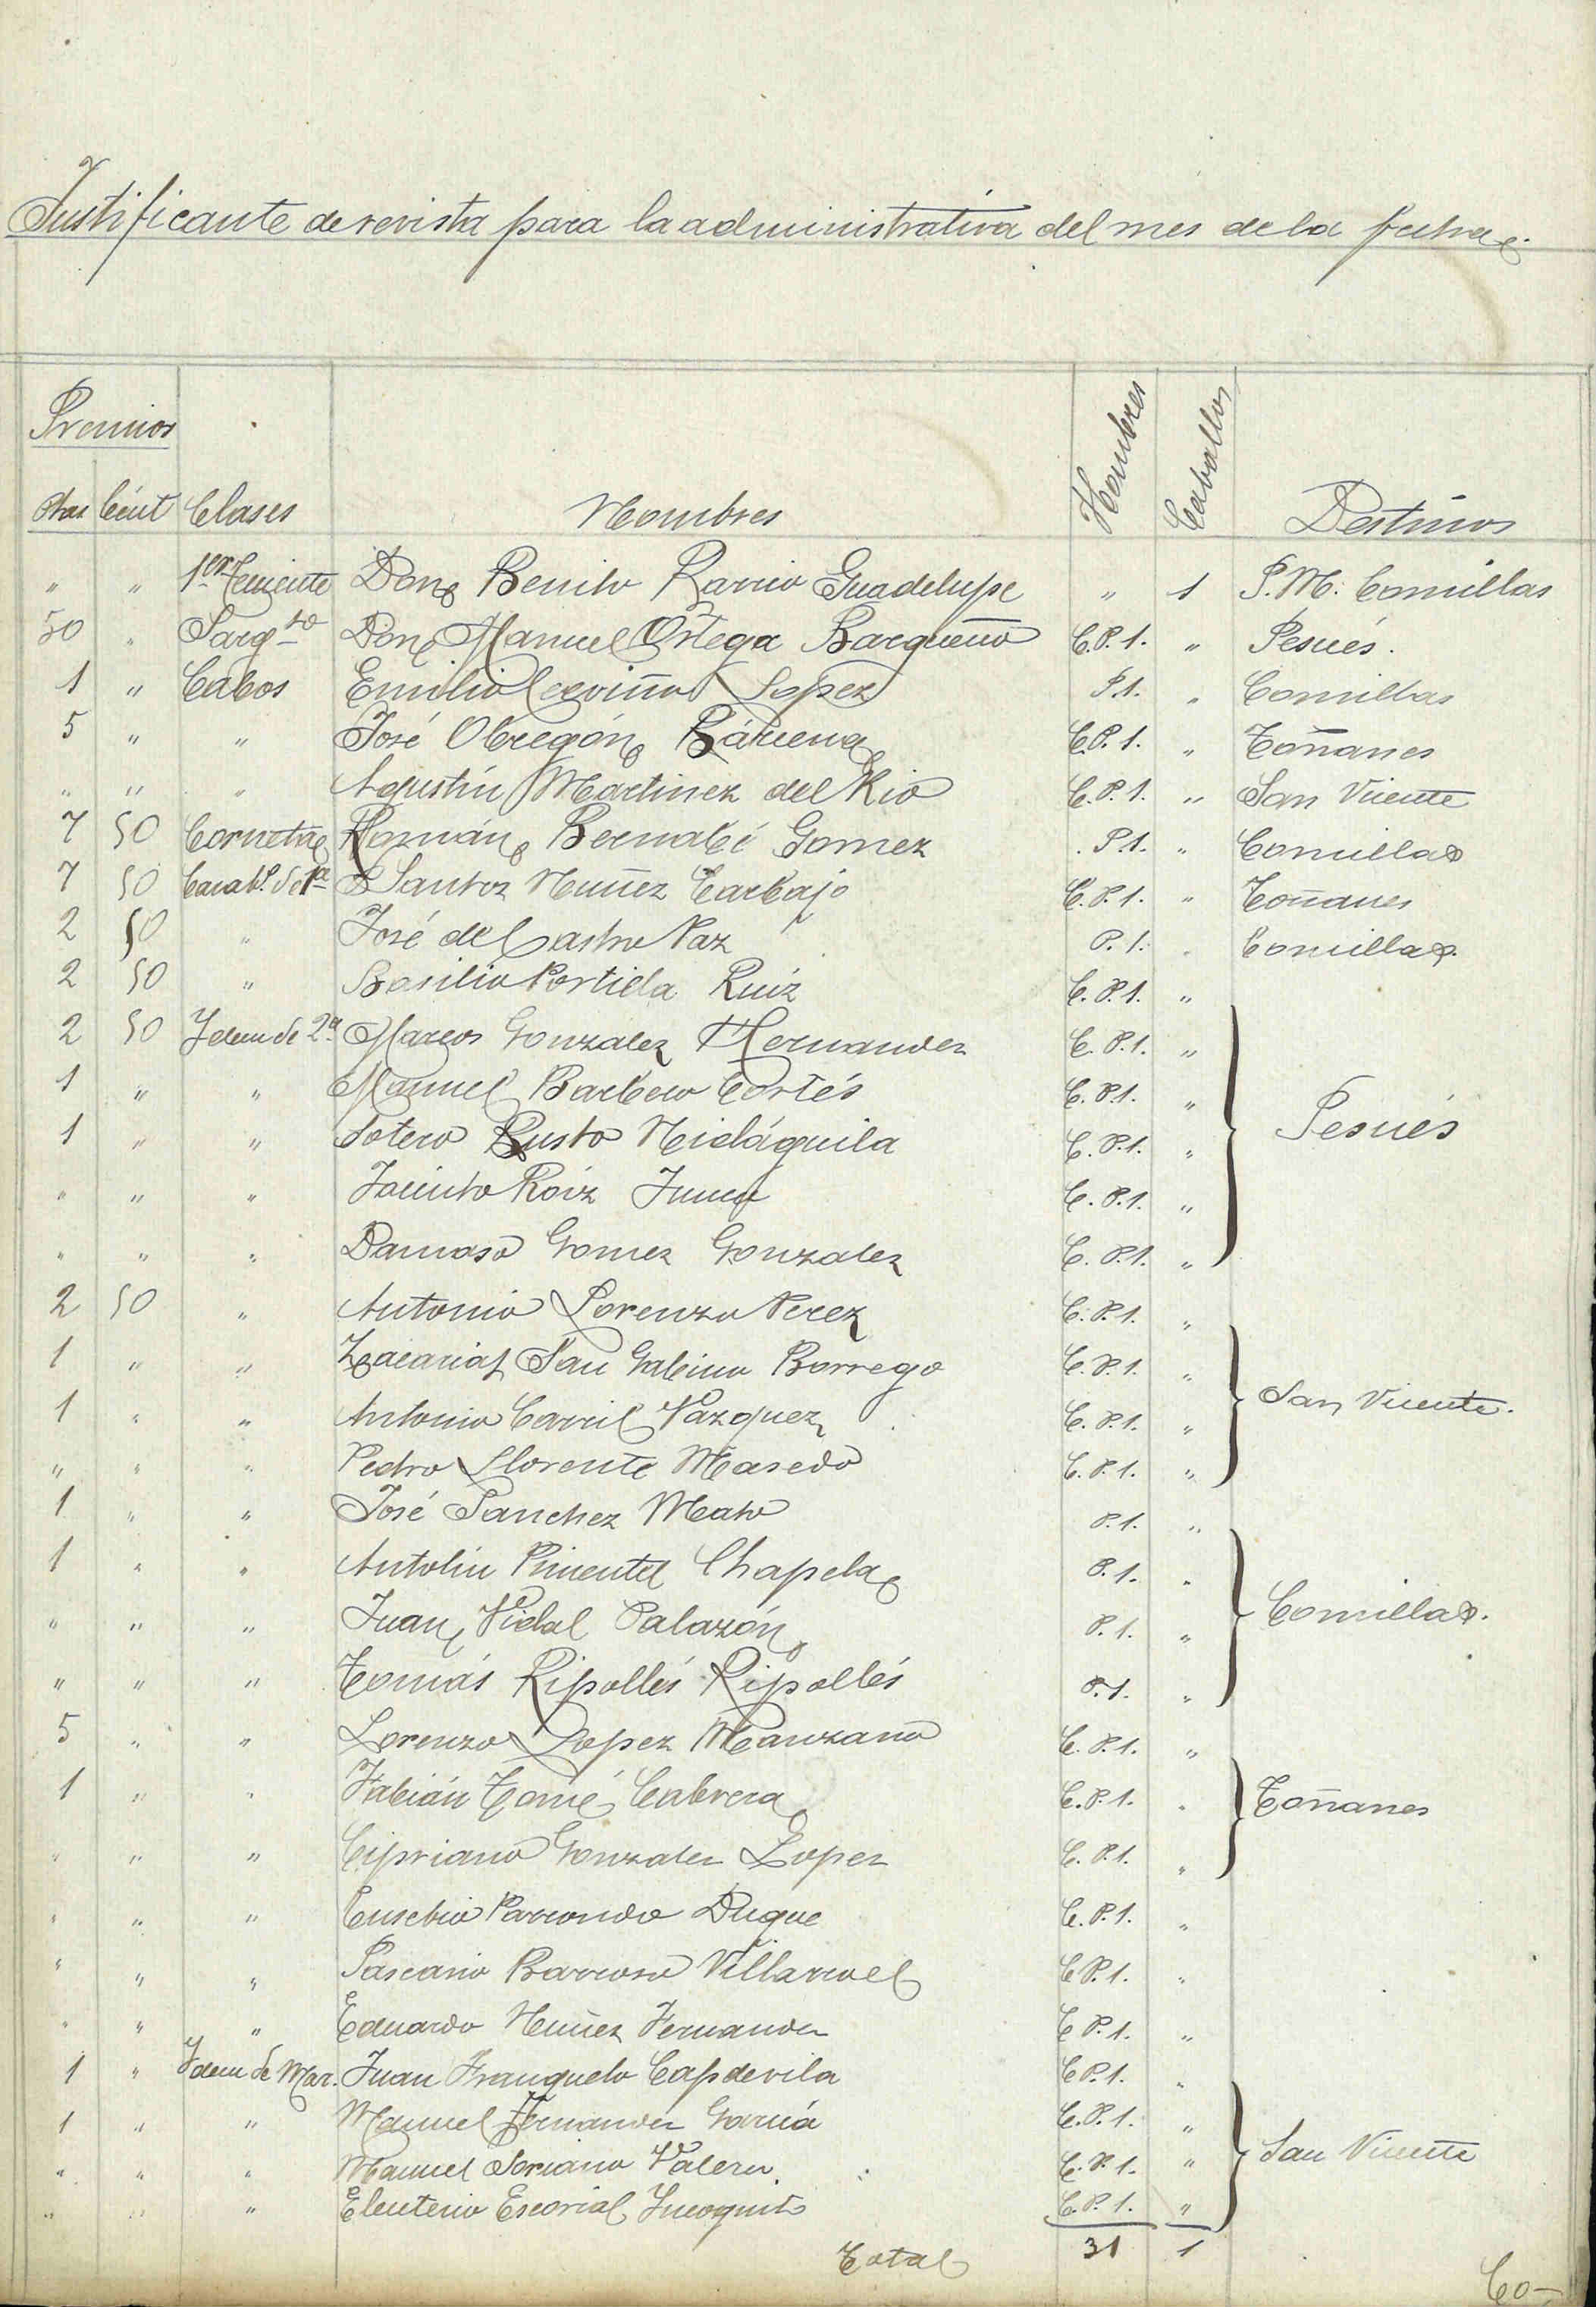 Justificante de revista para la administrativa del mes de la fecha.
Premios
Ptas Cént Clases Nombres Hombres Caballos Destinos
" " 1er Teniente Don Benito Barrio Guadelupe " 1 P.M. Comillas
50 " Sargto Don Manuel Ortega Bargueño C.P.1. " Pesués.
1 " Cabos Emilio Cerviño Lopez P.1. " Comillas
5 " " José Obregón Bárcena C.P.1. " Toñanes
" " " Agustín Martinez del Rio C.P.1. " San Vicente
7 50 Corneta Román Bernabé Gomez P.1. " Comillas
7 50 Carabo. de 1a Santos Nuñez Carbajo C.P.1. " Toñanes
2 50 " José de Castro Paz P.1. " Comillas.
2 50 " Basilio Portida Ruiz C.P.1. "
2 50 Idem de 2a Marcos Gonzalez Hernandez C.P.1. "
1 " " Manuel Barbero Cortés C.P.1. " Pesués
1 " " Sotero Busto Nidáguila C.P.1. "
" " " Jacinto Roiz Junco C.P.1. "
" " " Damaso Gomez Gonzalez C.P.1. "
2 50 " Antonio Lorenzo Perez C.P.1. "
1 " " Zacarias San Gabino Borrego C.P.1. "
1 " " Antonio Carril Vazquez C.P.1. " San Vicente.
" " " Pedro Llorente Masedo C.P.1. "
1 " " José Sanchez Mato P.1. "
1 " " Antolin Pimentel Chapela P.1. "
" " " Juan Vidal Palazón P.1. " Comillas.
" " " Tomás Ripollés Ripollés P.1. "
5 " " Lorenzo Lopez Manzano C.P.1. "
1 " " Fabián Tomé Cabrera C.P.1. " Toñanes
" " " Cipriano Gonzalez Lopez C.P.1. "
" " " Eusebio Parrondo Duque C.P.1. "
" " " Pascasio Barroso Villarroel C.P.1. "
" " " Eduardo Nuñez Fernandez C.P.1. "
1 " Idem de Mar. Juan Franquelo Capdevila C.P.1. "
1 " " Manuel Fernandez García C.P.1. "
" " " Manuel Soriano Valero C.P.1. " San Vicente
" " " Eleuterio Escorial Incognito C.P.1. "
Total 31 1
Co-